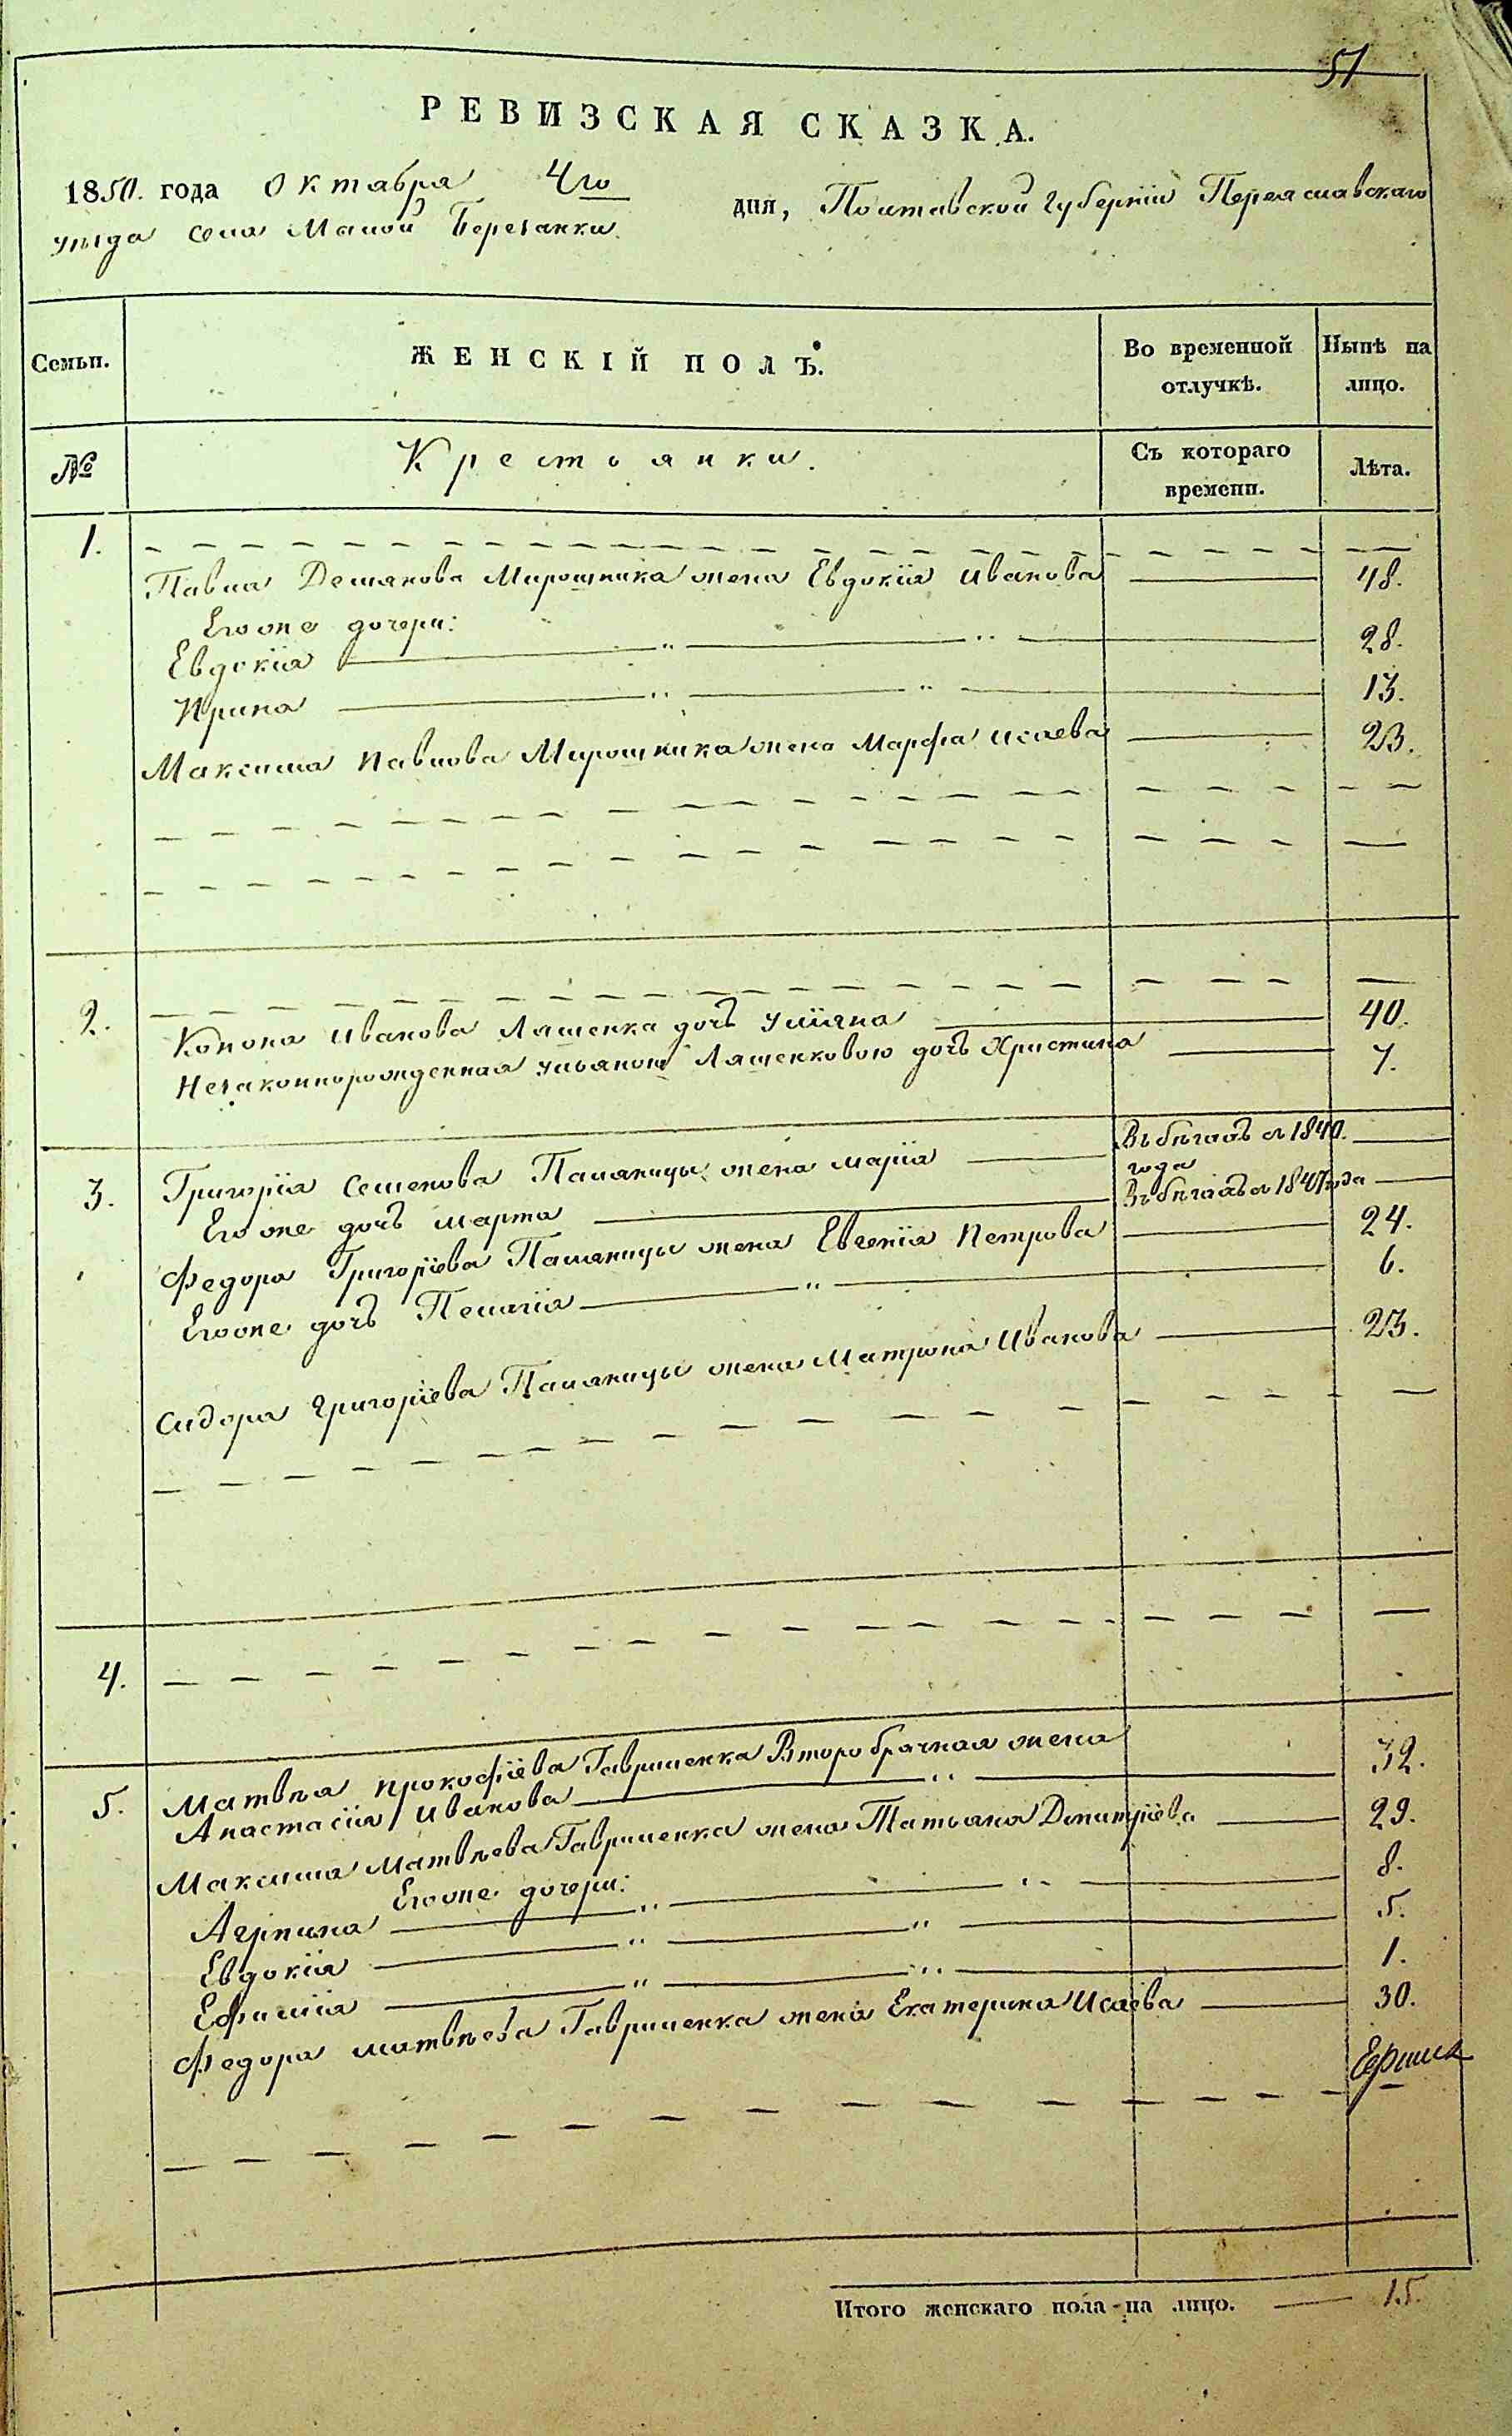 51
РЕВИЗСКАЯ СКАЗКА.
1850. года Октября 4го дня, Полтавской Губерніи Переяславскаго
уѣзда села Малой Березанки.
Семьи. ЖЕНСКІЙ ПОЛЪ. Во временной отлучкѣ. Нынѣ на лицо.
№ Крестьянки. Съ котораго времени. Лѣта.
1.
Павла Демянова Мирошника жена Евдокія Иванова 48.
Его же дочери:
Евдокія " " 28.
Ирина " " 13.
Максима Павлова Мирошника жена Марфа Исаева 23.
2.
Конона Иванова Ляшенка дочъ Уліяна 40.
Незаконнорожденная Ульяною Ляшенковою дочъ Христина 7.
3. Григорія Семенова Паляницы жена Марія Въ бѣгахъ съ 1840. года
Его же дочъ Марта Въ бѣгахъ съ 1847 года
Федора Григоріева Паляницы жена Евгенія Петрова 24.
Его же дочъ Пелагія " 6.
Сидора Григоріева Паляницы жена Матрона Иванова 23.
4.
5. Матвѣя Прокофіева Гавриленка Второбрачная жена
Анастасія Иванова " 32.
Максима Матвѣева Гавриленка жена Татьяна Дмитріева 29.
Его же дочери:
Агрпина " " 8.
Евдокія " " 5.
Ефимія " " 1.
Федора Матвѣева Гавриленка жена Екатерина Исаева 30.
Итого женскаго пола на лицо. 15.